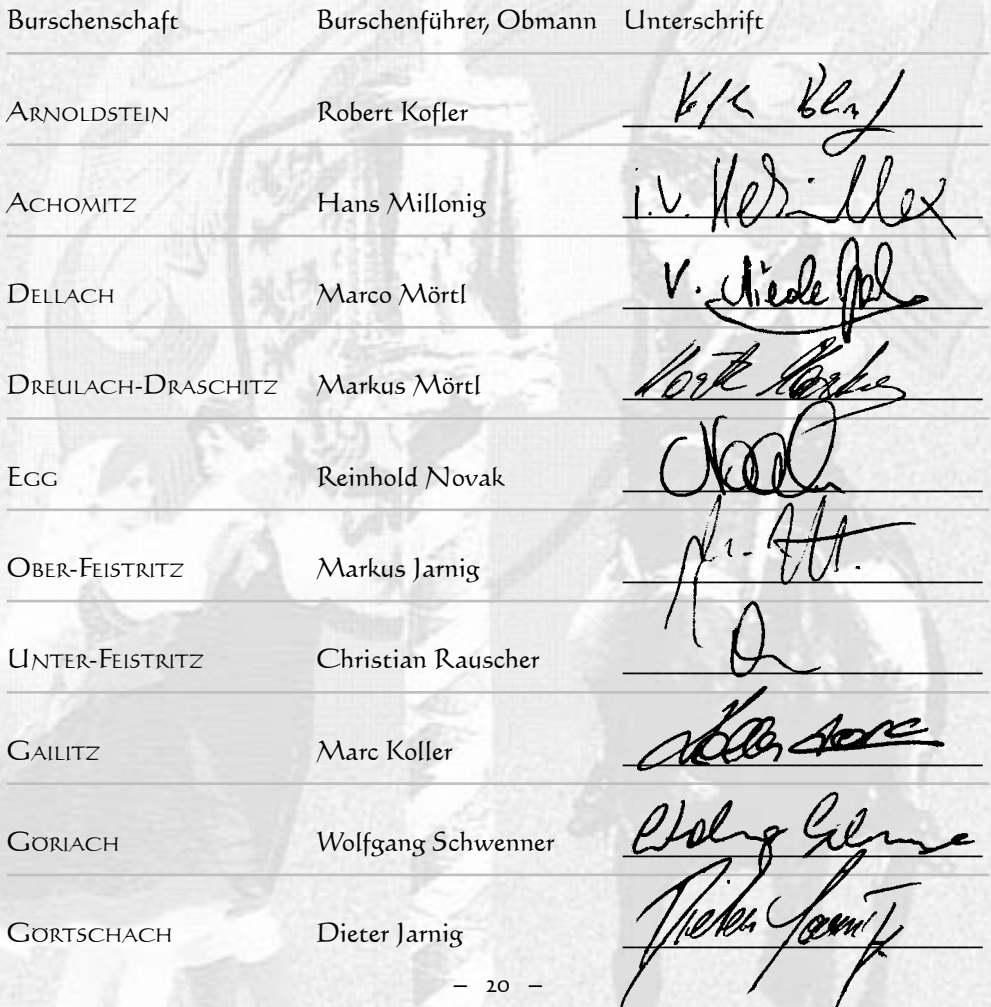 Burschenschaft Burschenführer, Obmann Unterschrift
Arnoldstein Robert Kofler
Achomitz Hans Millonig i.V.
Dellach Marco Mörtl V.
Dreulach-Draschitz Markus Mörtl
Egg Reinhold Novak
Ober-Feistritz Markus Jarnig
Unter-Feistritz Christian Rauscher
Gailitz Marc Koller Koller Marc
Göriach Wolfgang Schwenner
Görtschach Dieter Jarnig Dieter Jarnig
– 20 –